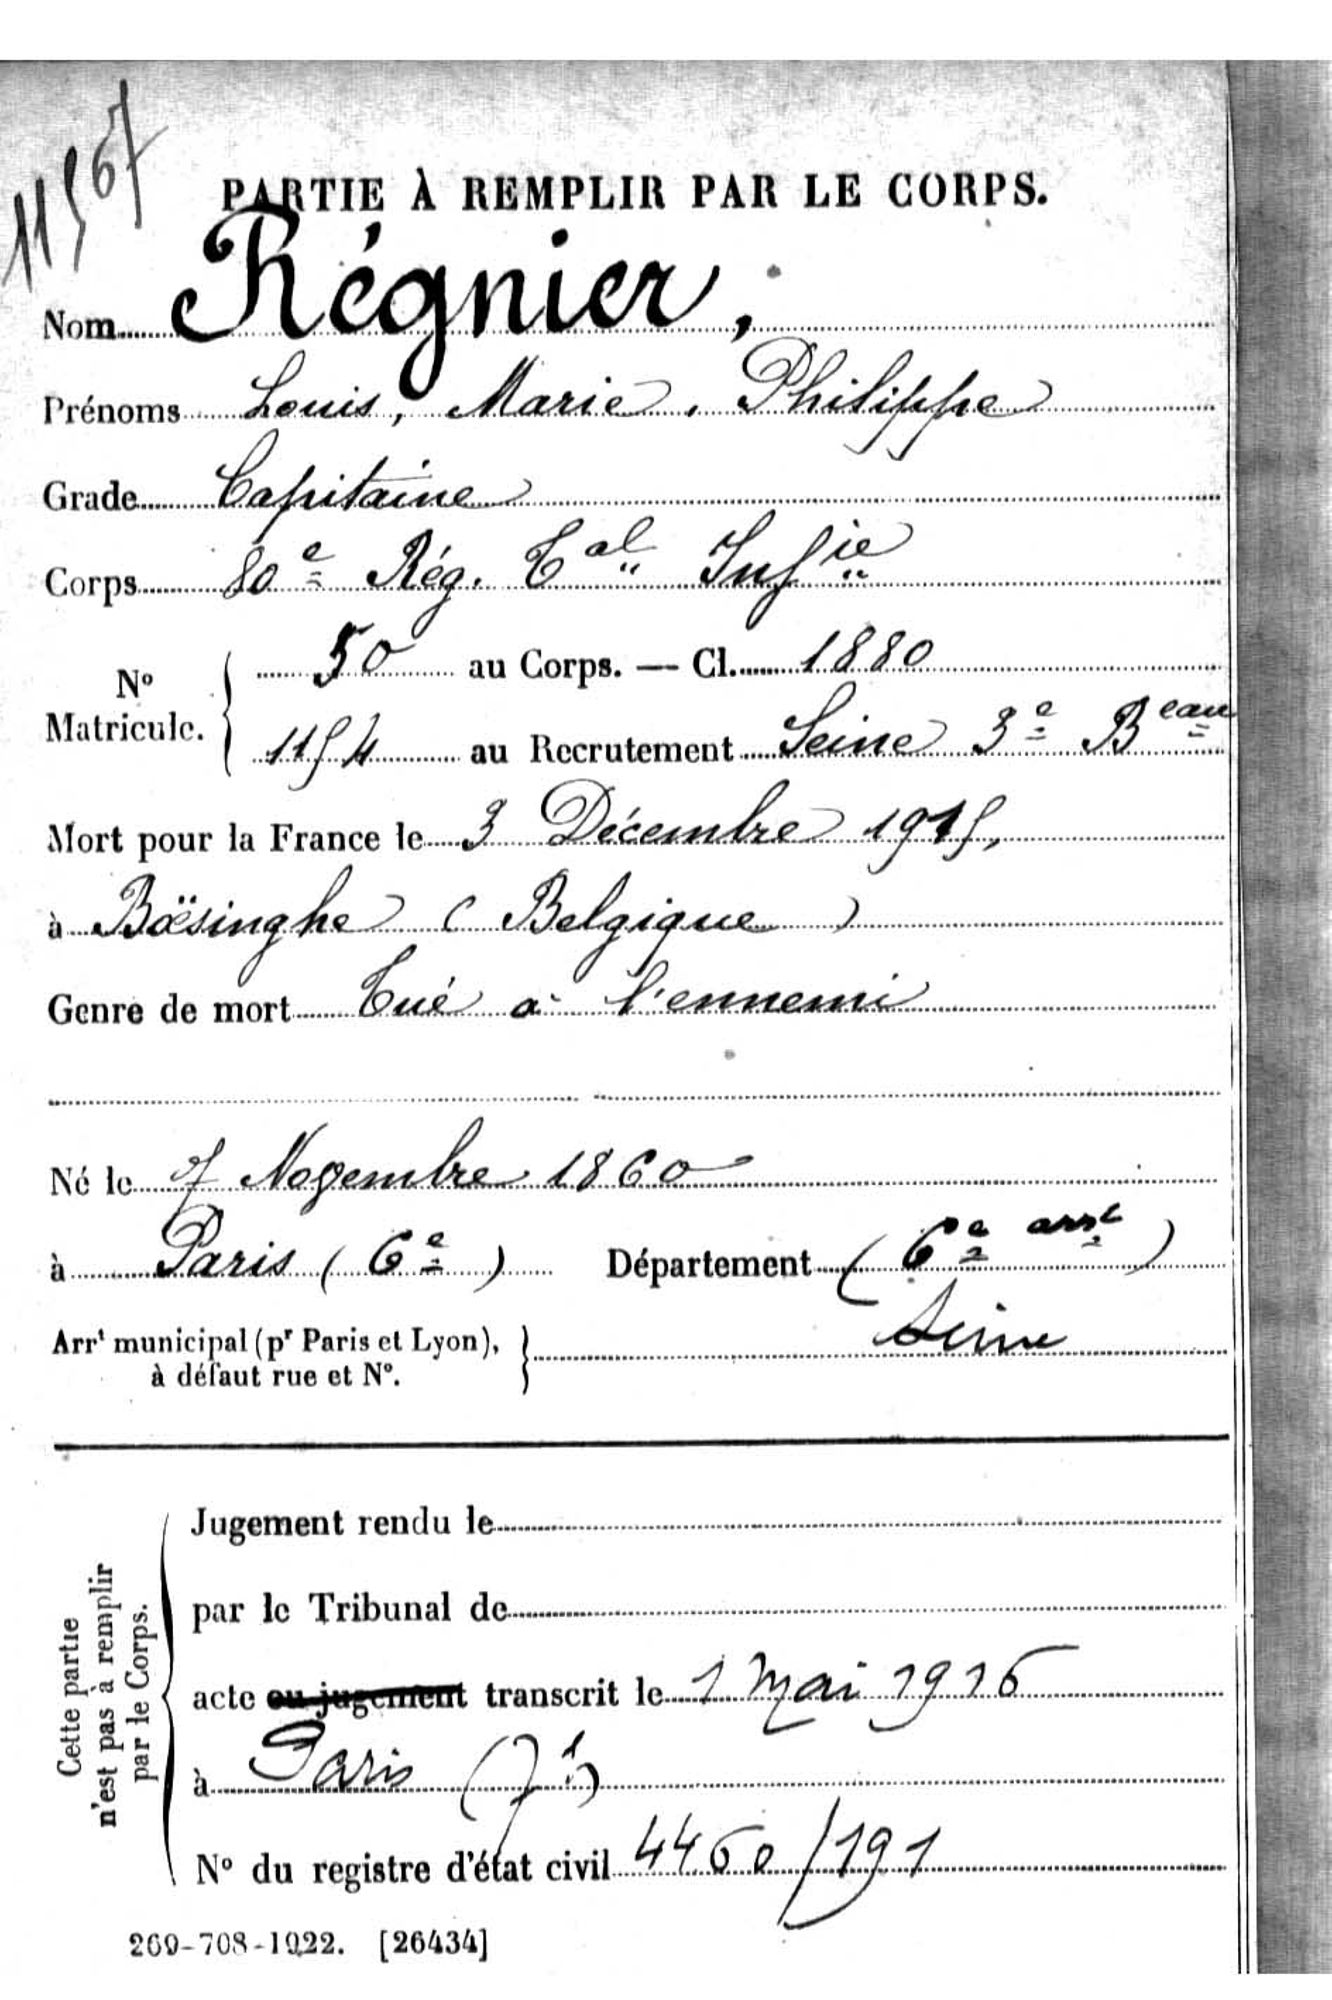 11567
PARTIE À REMPLIR PAR LE CORPS.
Nom Régnier,
Prénoms Louis, Marie, Philippe
Grade Capitaine
Corps 80e Rég. Tal Infie
No Matricule. 50 au Corps. — Cl. 1880
1154 au Recrutement Seine 3e Beau
Mort pour la France le 3 Décembre 1915,
à Boësinghe (Belgique)
Genre de mort Tué à l'ennemi
Né le 7 Novembre 1860
à Paris (6e) Département (6e arrt)
Arrt municipal (pr Paris et Lyon), à défaut rue et No. Seine
Cette partie n'est pas à remplir par le Corps.
Jugement rendu le
par le Tribunal de
acte ou jugement transcrit le 1 Mai 1916
à Paris (7e)
No du registre d'état civil 4460/191
269-708-1922. [26434]